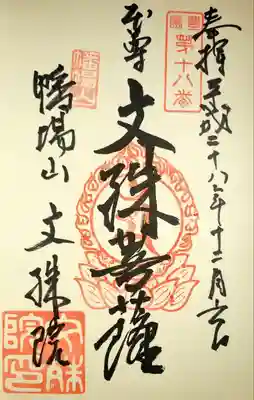 奉拝 平成二十八年十二月六日
第十八番
本尊 文殊菩薩
鴨場山 文殊院
文殊院印